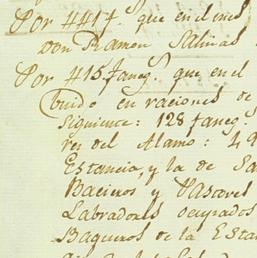 Por 441 f. que en el mes
Don Ramon Salinas
Por 415 faneg.s que en el
buido en raciones de
siguiente: 128 faneg.s
res del Alamo: 49
Estancia, y la de Sa
Baceros y Pastores
Labradores ocupados
Baqueros de la Esta